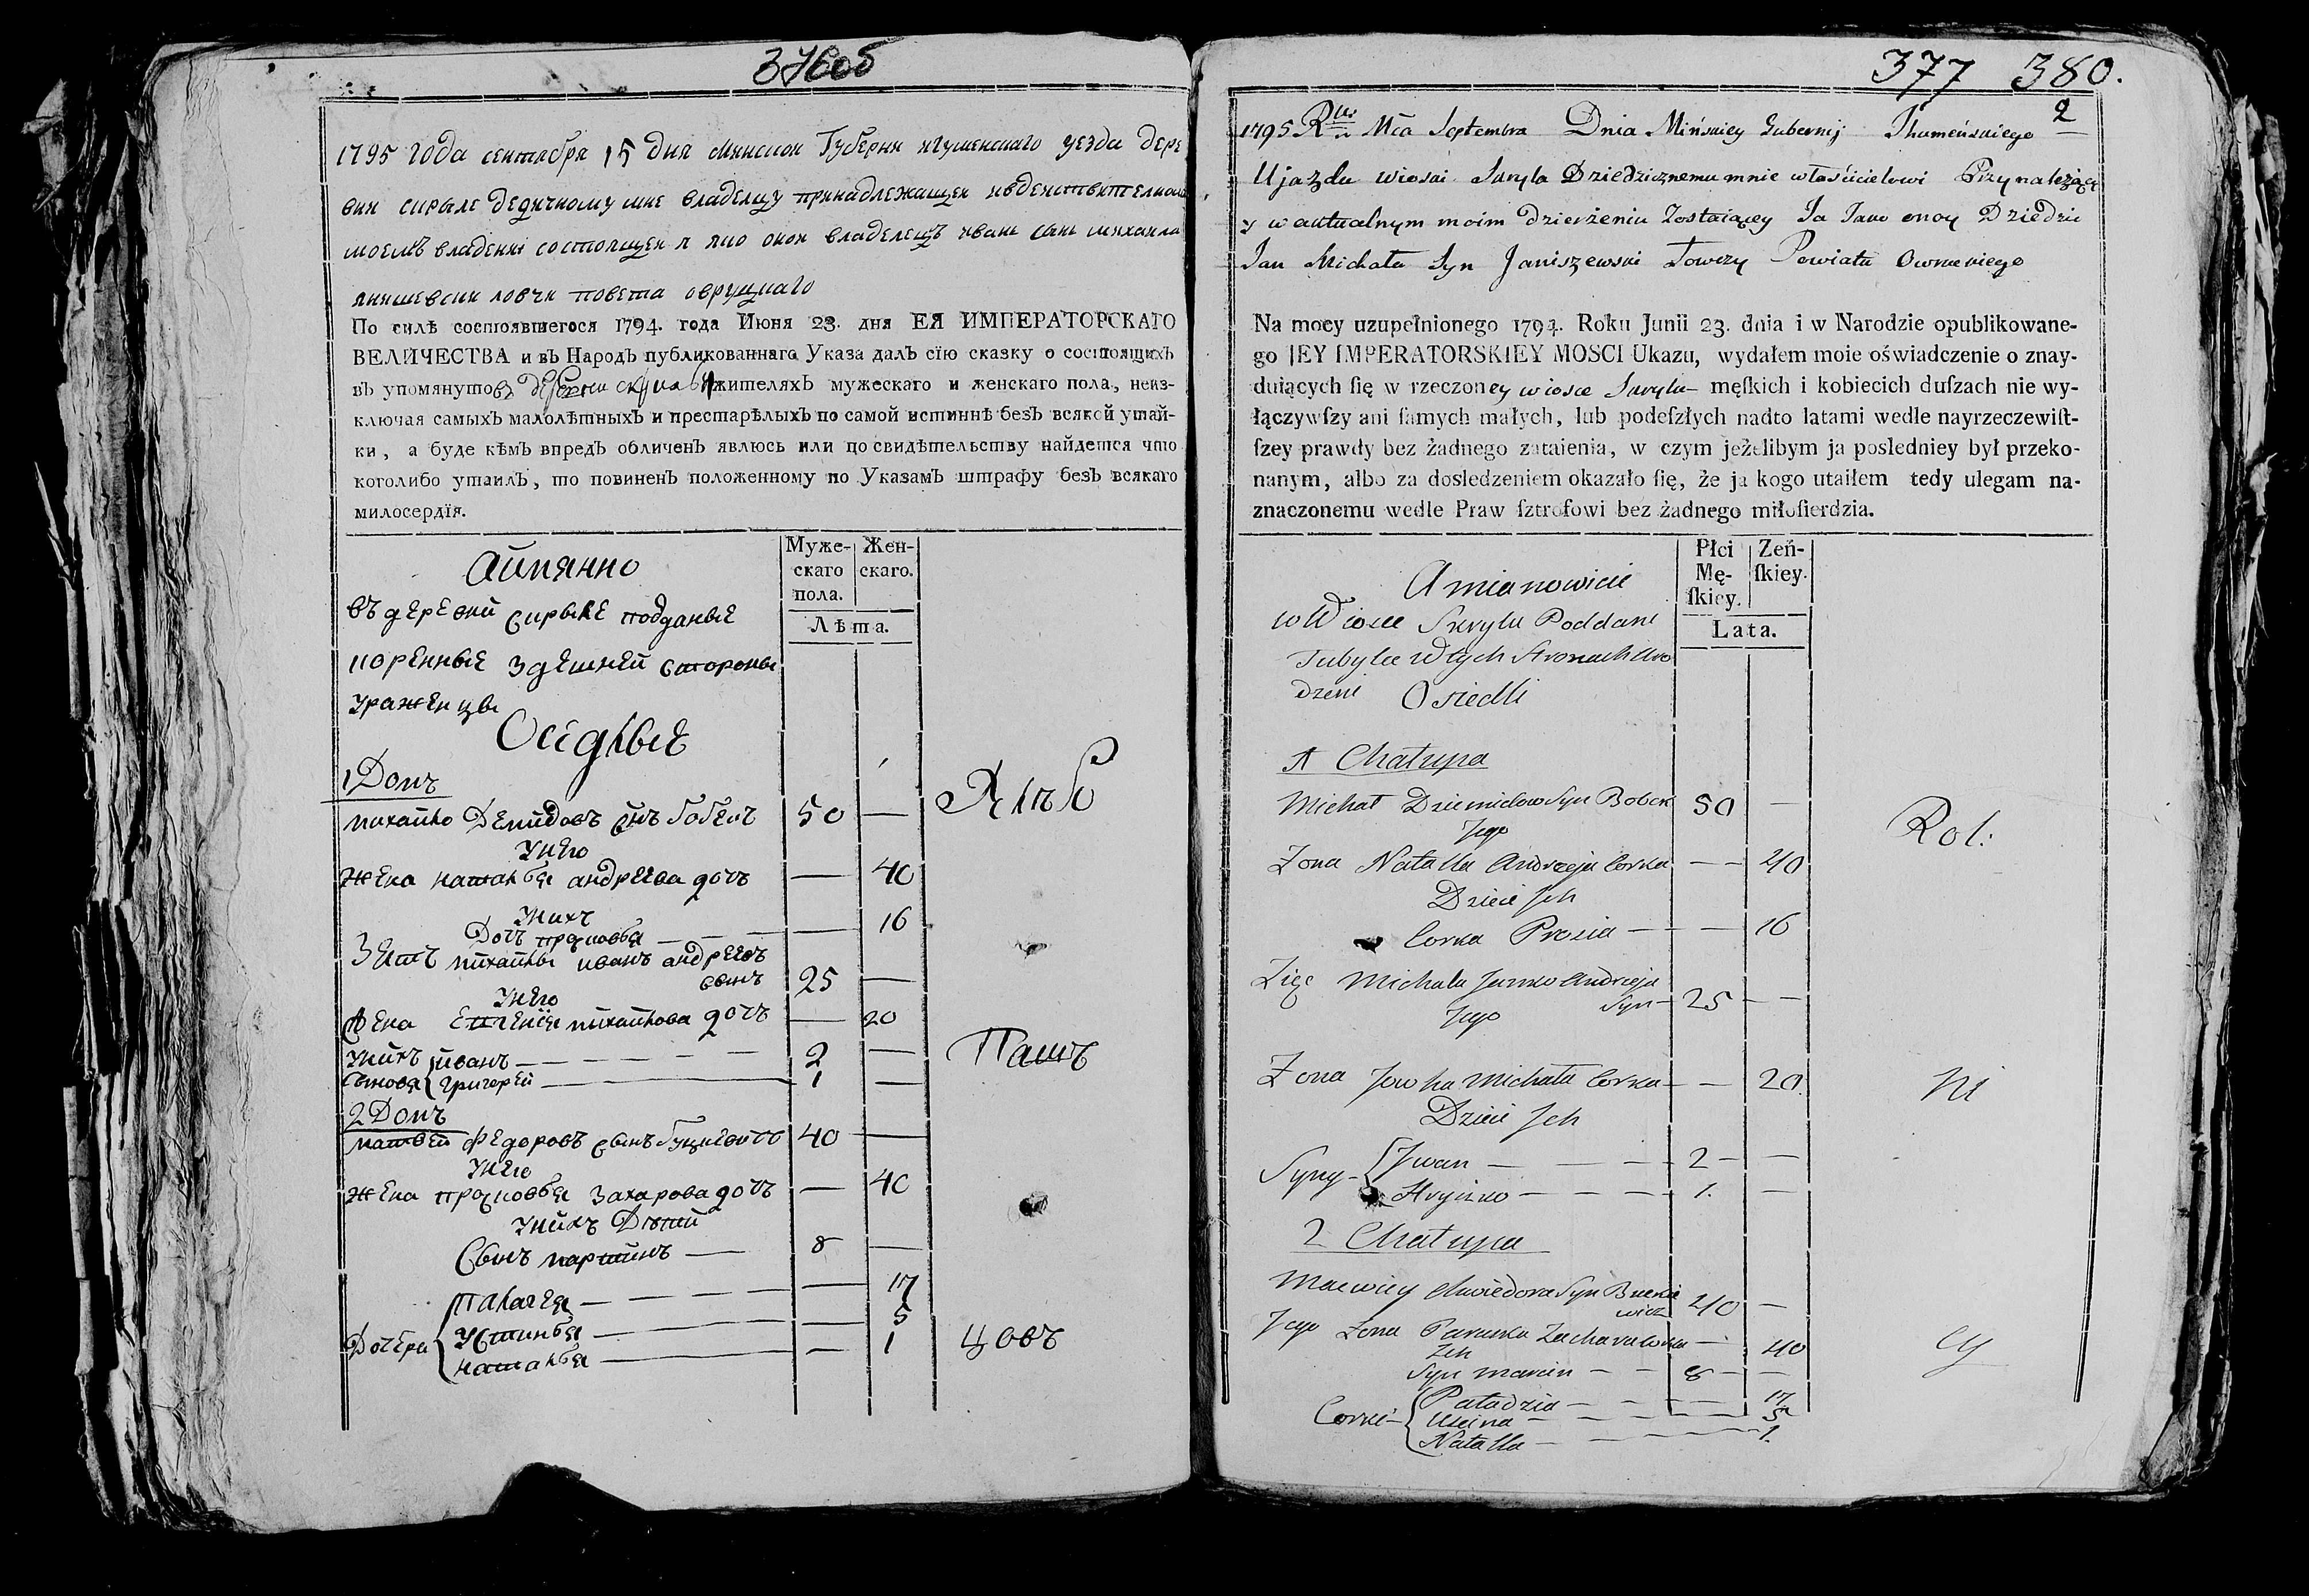 376об
1795 года сентября 15 дня минской Губерни игуменскаго уезда дере
вни сирыле дедичному мне владелцу принадлежащей ивдействителном
моемъ владенні состоящей я яко оной владелецъ иванъ сынъ михайла
янишевски ловчи повета овруцкаго
По силѣ состоявшегося 1794. года Июня 23. дня ЕЯ ИМПЕРАТОРСКАГО
ВЕЛИЧЕСТВА и въ Народъ публикованнаго Указа далъ сїю сказку о состоящихъ
въ упомянутой жителяхъ мужескаго и женскаго пола, неиз-
ключая самыхъ малолѣтныхъ и престарѣлыхъ по самой истиннѣ безъ всякой утай-
ки, а буде кѣмъ впредъ обличенъ явлюсь или по свидѣтельству найдется что
коголибо утаилъ, то повиненъ положенному по Указамъ штрафу безъ всякаго
милосердїя.
Муже- Жен-
скаго скаго.
пола.
Лѣта.
аимянно
въ деревни сирыле подданые
коренные здешней стороны
ураженцы
Осидлые
1 Домъ
михайло Демидовъ снъ бобекъ 50 —
унего
жена наталья андреева дочь — 40
унихъ
Дочь прасковья — 16
Зеть михайлы иванъ андреевъ
сынъ 25 —
унего
жена евгения михайлова дочь — 20
унихъ иванъ — 2 —
сыновя григорей — 1 —
2 Домъ
матвей федоровъ сынъ буцкевичъ 40 —
унего
жена прасковья захарова дочь — 40
унихъ дѣтий
сынъ мартинъ — 8 —
палагея — 17
Дочери устинья — 5
наталья — 1
Хлѣб
Паш
цовъ
377 380.
2
1795 Rku Mca Septembra Dnia Mińskiey Gubernij Ihumeńskiego
Ujazdu wioski Suryla Dziedzicznemu mnie właścicielowi Przynależącey
y w aktualnym moim dzierżeniu Zostaiącey Ja Jako onoy Dziedzic
Jan Michała Syn Janiszewski Łowczy Powiatu Owruckiego
Na mocy uzupełnionego 1794. Roku Junii 23. dnia i w Narodzie opublikowane-
go JEY IMPERATORSKIEY MOSCI Ukazu, wydałem moie oświadczenie o znay-
duiących ſię w rzeczoney wiosce Suryla — męſkich i kobiecich duſzach nie wy-
łączywſzy ani ſamych małych, lub podeſzłych nadto latami wedle nayrzeczewiſt-
ſzey prawdy bez żadnego zataienia, w czym jeżelibym ja posledniey był przeko-
nanym, albo za dosledzeniem okazało ſię, że ja kogo utaiłem tedy ulegam na-
znaczonemu wedle Praw ſztrofowi bez żadnego miłoſierdzia.
Płci Zeń-
Mę- ſkiey.
ſkiey.
Lata.
Amianowicie
w Wiosce Suryla Poddani
Tubylce w tych Stronach Uro
dzeni Osiedli
1 Chałupa
Michał Dziemidow Syn Bobek 50 —
Jego
Zona Natalla Andrzeja Corka — 40
Dzieci Jch
Corka Prosia — — 16
Zięć Michała Janko Andrzeja
Syn — 25 —
Jego
Zona Jowha Michała Corka — — 20
Dzieci Jch
Syny Jwan — 2 —
Hryszko — 1. —
2 Chałupa
Macwiey Chwiedora Syn Bucke
wicz 40 —
Jego Zona Paruska Zachara Corka — 40
Jch
Syn Marcin — 8 —
Corki Paładzia — 17
Uscina — 5
Natalla — 1.
Rol:
ni
cy